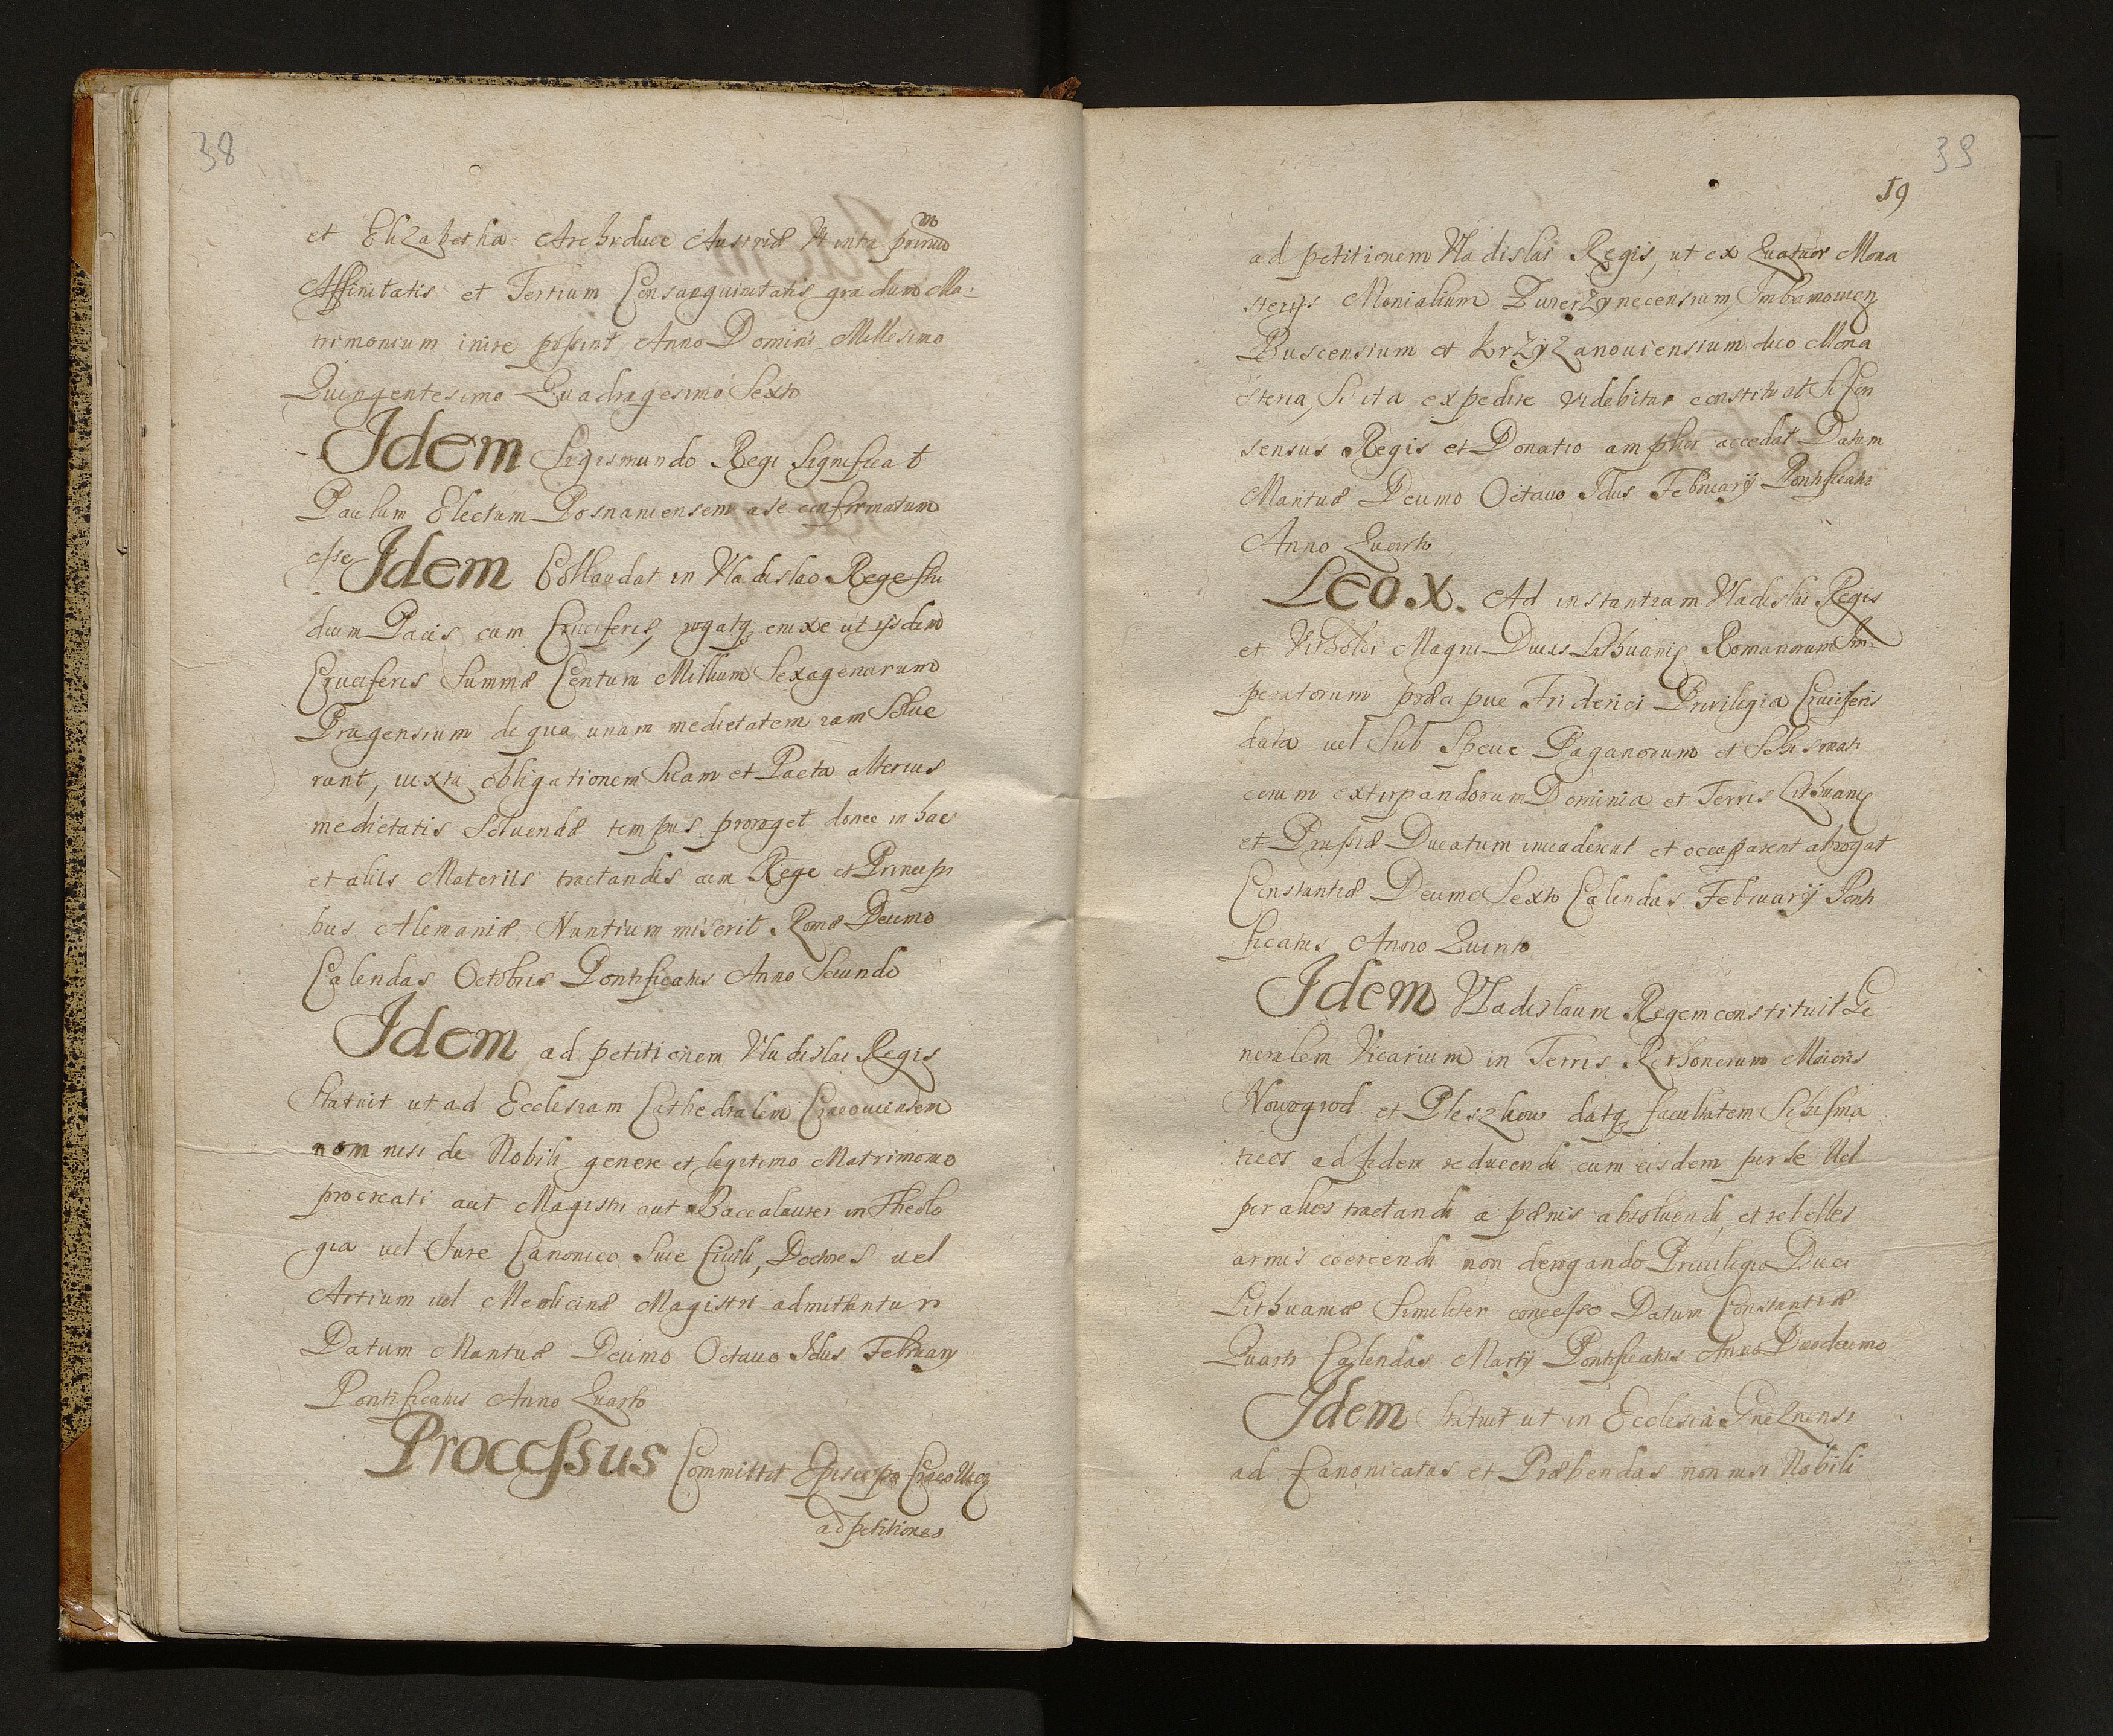 38
et Elizabetha Archiduce Austriæ Ut intra primum
Affinitatis et Tertium Consanguinitatis gradum Ma:
trimonium inire possint Anno Domini Millesimo
Quingentesimo Quadragesimo Sexto
Idem Sigismundo Regi Significat
Paulum Electum Posnaniensem a se confirmatum
esse Idem Collaudat in Vladislao Rege stu
dium Pacis cum Cruciferis, rogatq enixe ut ijsdem
Cruciferis Summæ Centum Millium Sexagenarum
Pragensium de qua unam medietatem iam Solue
rant, iuxta obligationem Suam et Pacta alterius
medietatis Soluendæ tempus proroget donec in hac
et aliis Materiis tractandis cum Rege et Princip
bus Alemaniæ Nuntium miserit Romæ Decimo
Calendas Octobris Pontificatus Anno Secundo
Idem ad petitionem Vladislai Regis
Statuit ut ad Ecclesiam Cathedralem Cracouiensem
non nisi de Nobili genere et legitimo Matrimonio
procreati aut Magistri aut Baccalaurei in Theolo
gia uel Iure Canonico Siue Ciuili, Doctores uel
Artium uel Medicinæ Magistri admittantur
Datum Mantuæ Decimo Octauo Idus Februarij
Pontificatus Anno Quarto
Processus Committit Episcopo
ad petitiones
39
19
ad petitionem Vladislai Regis, ut ex Quatuor Mona
sterijs Monialium Zwierzynecensium,
Buscensium et Krzyzanouiensium duo Mona
steria, Si ita expedire videbitur constituat Si Con
sensus Regis et Donatio amplior accedat Datum
Mantuæ Decimo Octauo Idus Februarij Pontificatus
Anno Quarto
Leo. X. Ad instantiam Vladislai Regis
et Vitholdi Magni Ducis Lithuaniæ Romanorum Im:
peratorum præcipue Friderici Priuilegia Cruciferis
data uel Sub Specie Paganorum et Schismati
corum extirpandorum Dominia et Terris Lithuaniæ
et Prussiæ Ducatum inuaderent et occuparent abrogat
Constantiæ Decimo Sexto Calendas Februarij Ponti
ficatus Anno Quinto
Idem Vladislaum Regem constituit Ge
neralem Vicarium in Terris Rethonerum Maioris
Nowogrod et Pleszkow datq facultatem Schisma
ticos ad fidem reducendi cum eisdem per Se Uel
per alios tractandi a pænis absoluendi, et rebelles
armis coercendi non derogando Priuilegio Duci
Lithuaniæ Similiter concesso Datum Constantiæ
Quarto Calendas Martij Pontificatus Anno Duodecimo
Idem Statuit ut in Ecclesia Gneznensi
ad Canonicatus et Præbendas non nisi Nobili